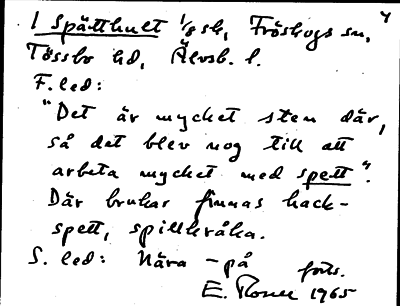 1 Spätthult 1/8 sk, Fröskogs sn,
Tössbo hd, Älvsb. l.
F. led:
"Det är mycket sten där,
så det blev nog till att
arbeta mycket med spett".
Där brukar finnas hack-
spett, spillkråka.
S. led: Nära - på
forts.
E. 1965